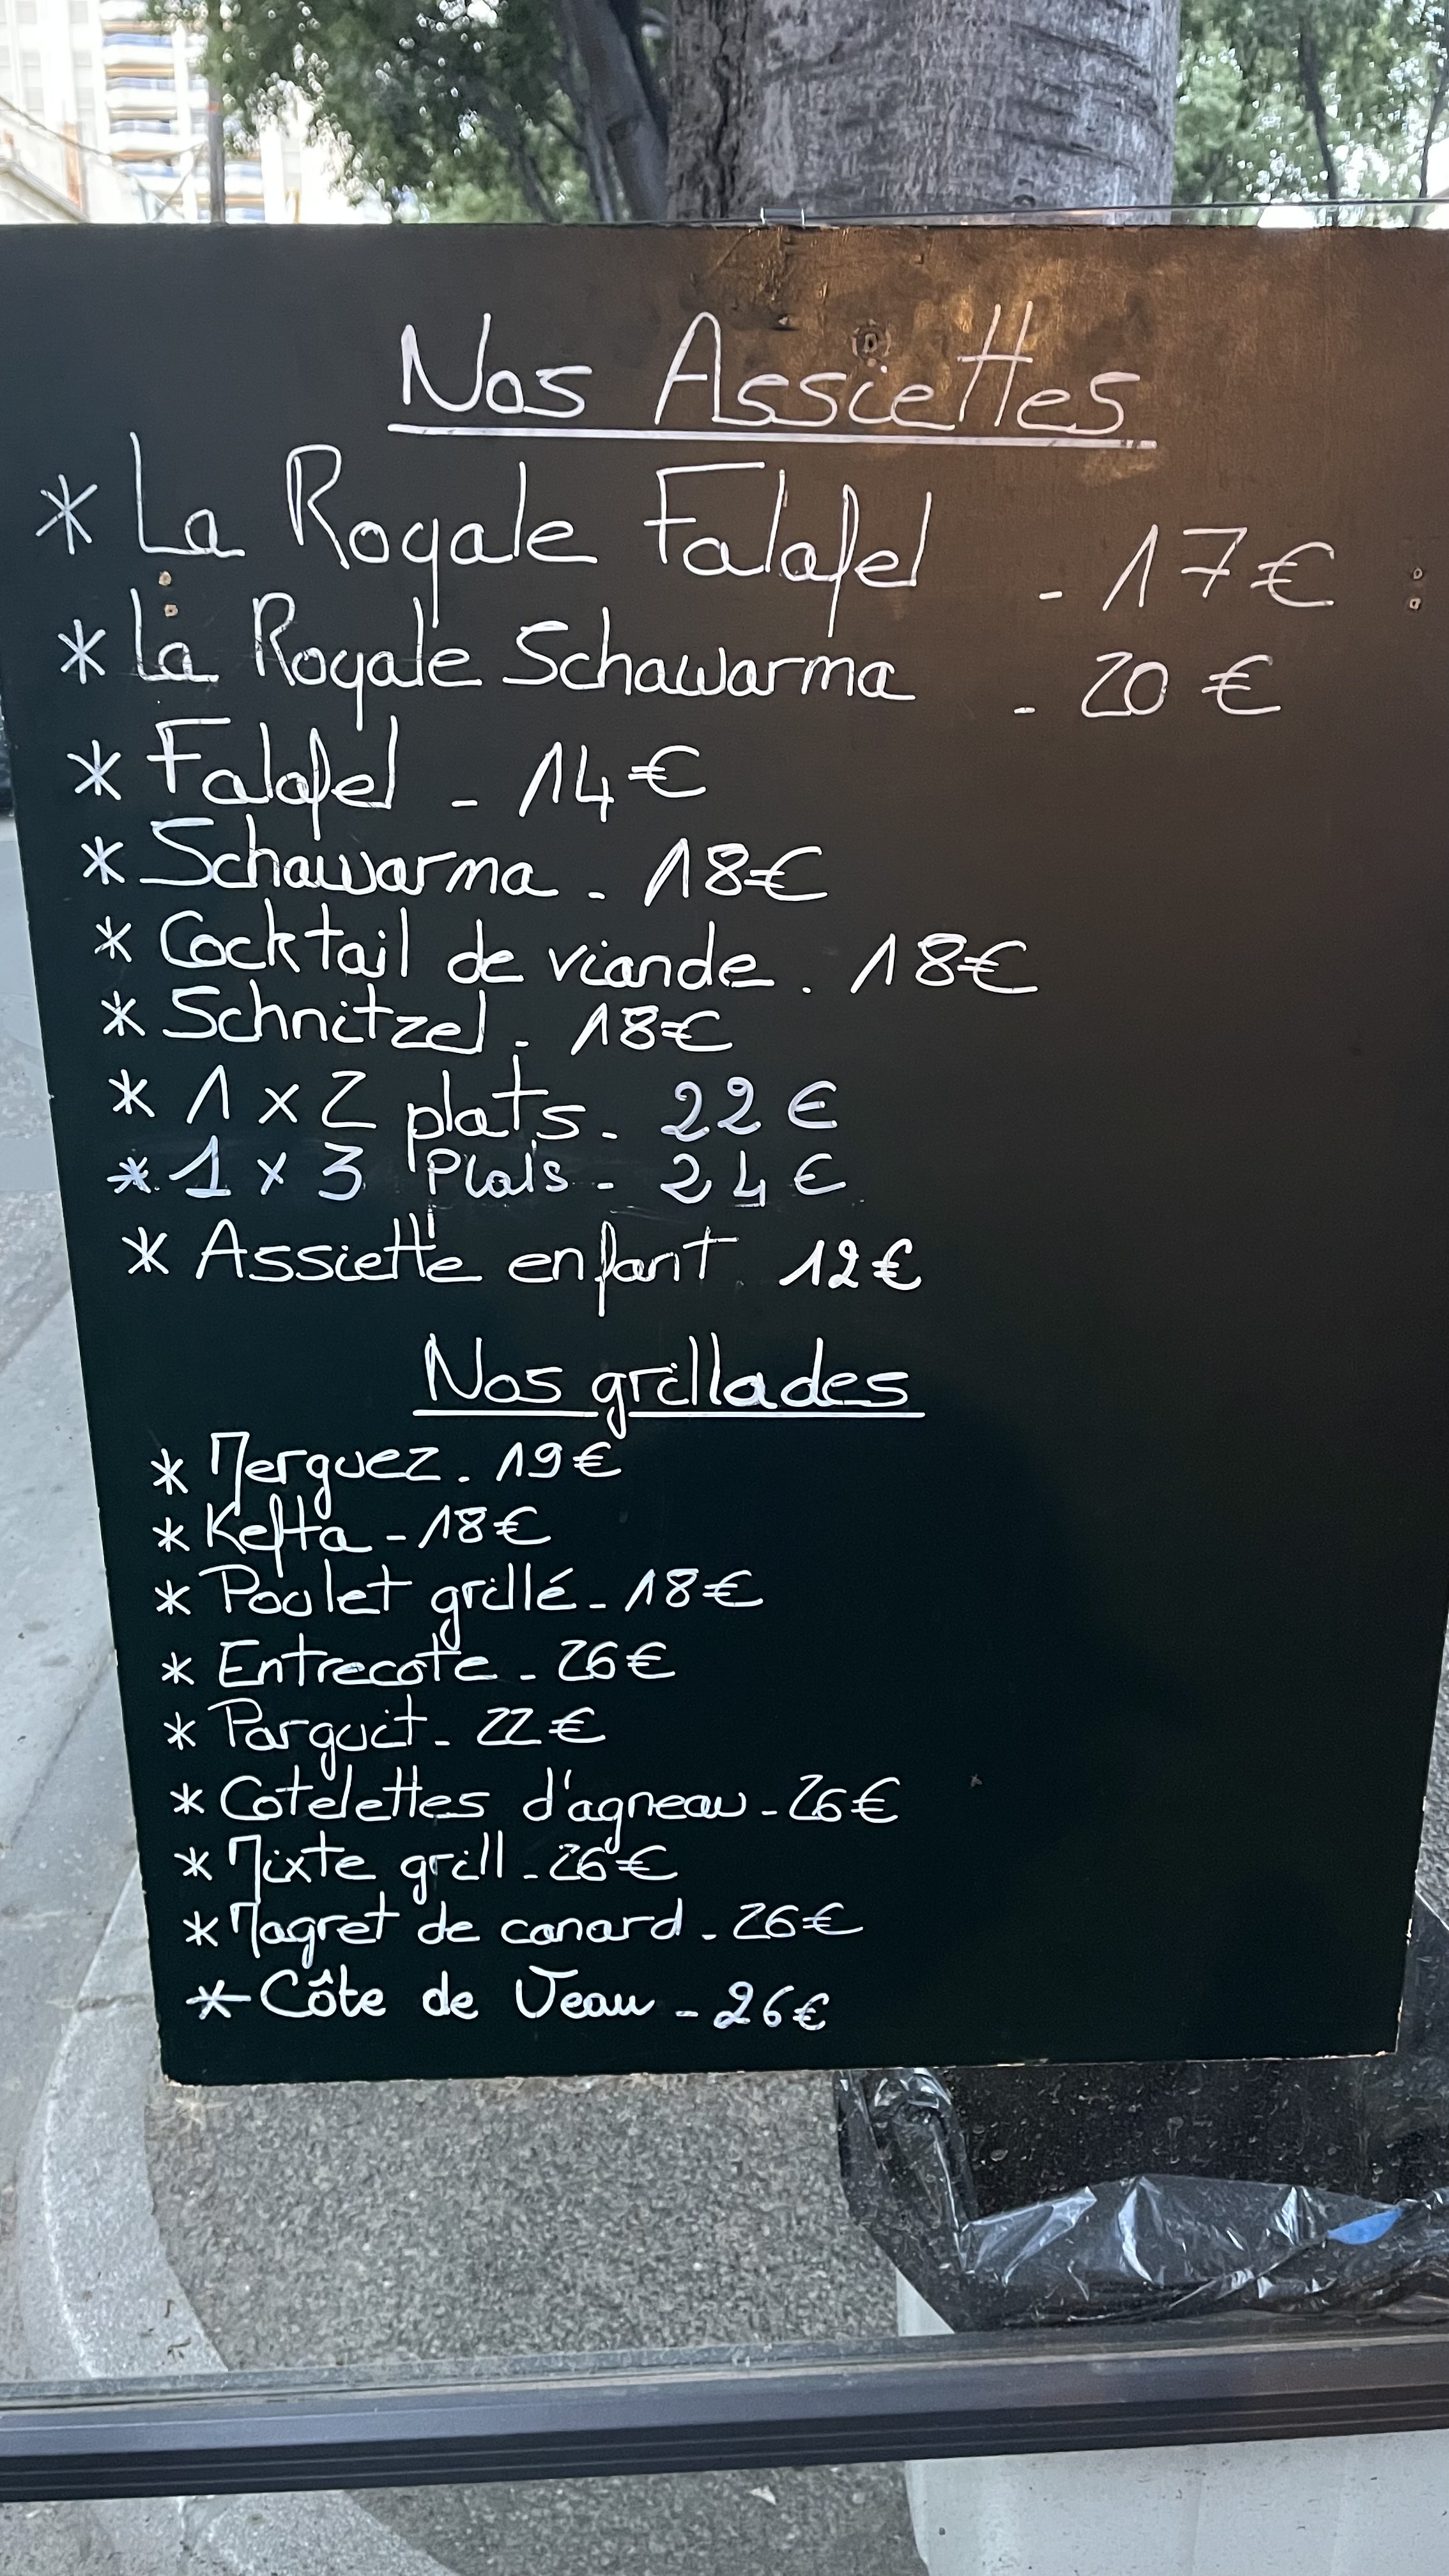 Nos Assiettes
* La Royale Falafel - 17€
* La Royale Schawarma - 20€
* Falafel - 14€
* Schawarma - 18€
* Cocktail de viande. 18€
* Schnitzel - 18€
* 1 x 2 plats - 22€
* 1 x 3 Plats - 24€
* Assiette enfant 12€
Nos grillades
* Merguez - 19€
* Kefta - 18€
* Poulet grillé - 18€
* Entrecote - 26€
* Parguit - 22€
* Cotelettes d'agneau - 26€
* Mixte grill - 26€
* Magret de canard - 26€
* Côte de Veau - 26€